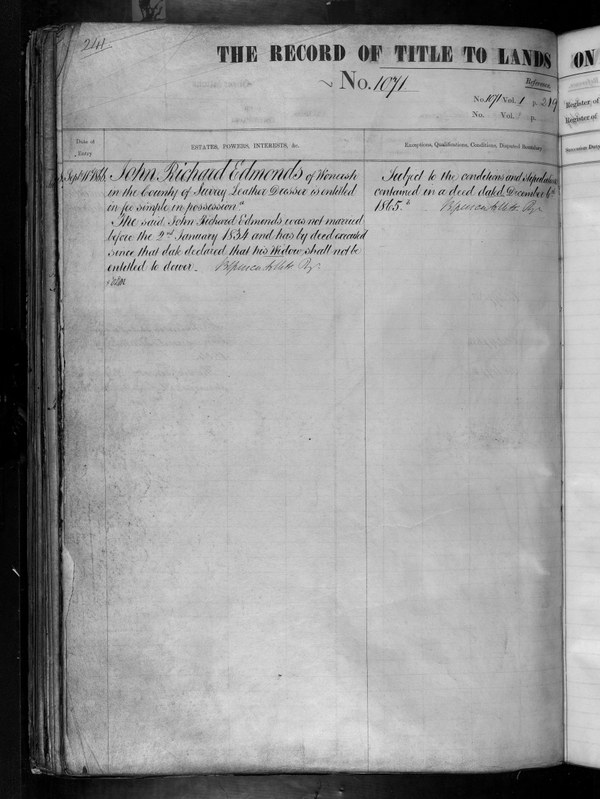 241
THE RECORD OF TITLE TO LANDS
ON
No. 1071
References.
No. 1071 Vol. 1 p. 219
No. Vol. p.
Register of
Register of
Date of
Entry
ESTATES, POWERS, INTERESTS, &c.
Exceptions, Qualifications, Conditions, Disputed Boundary
Succession Duty
John Richard Edmonds of Wonersh
in the County of Surrey Leather Dresser is entitled
in fee simple in possession
The said John Richard Edmonds was not married
before the 2nd January 1834 and has by deed executed
since that date declared that his Widow shall not be
entitled to dower.
Subject to the conditions and stipulations
contained in a deed dated December 6th
1865.